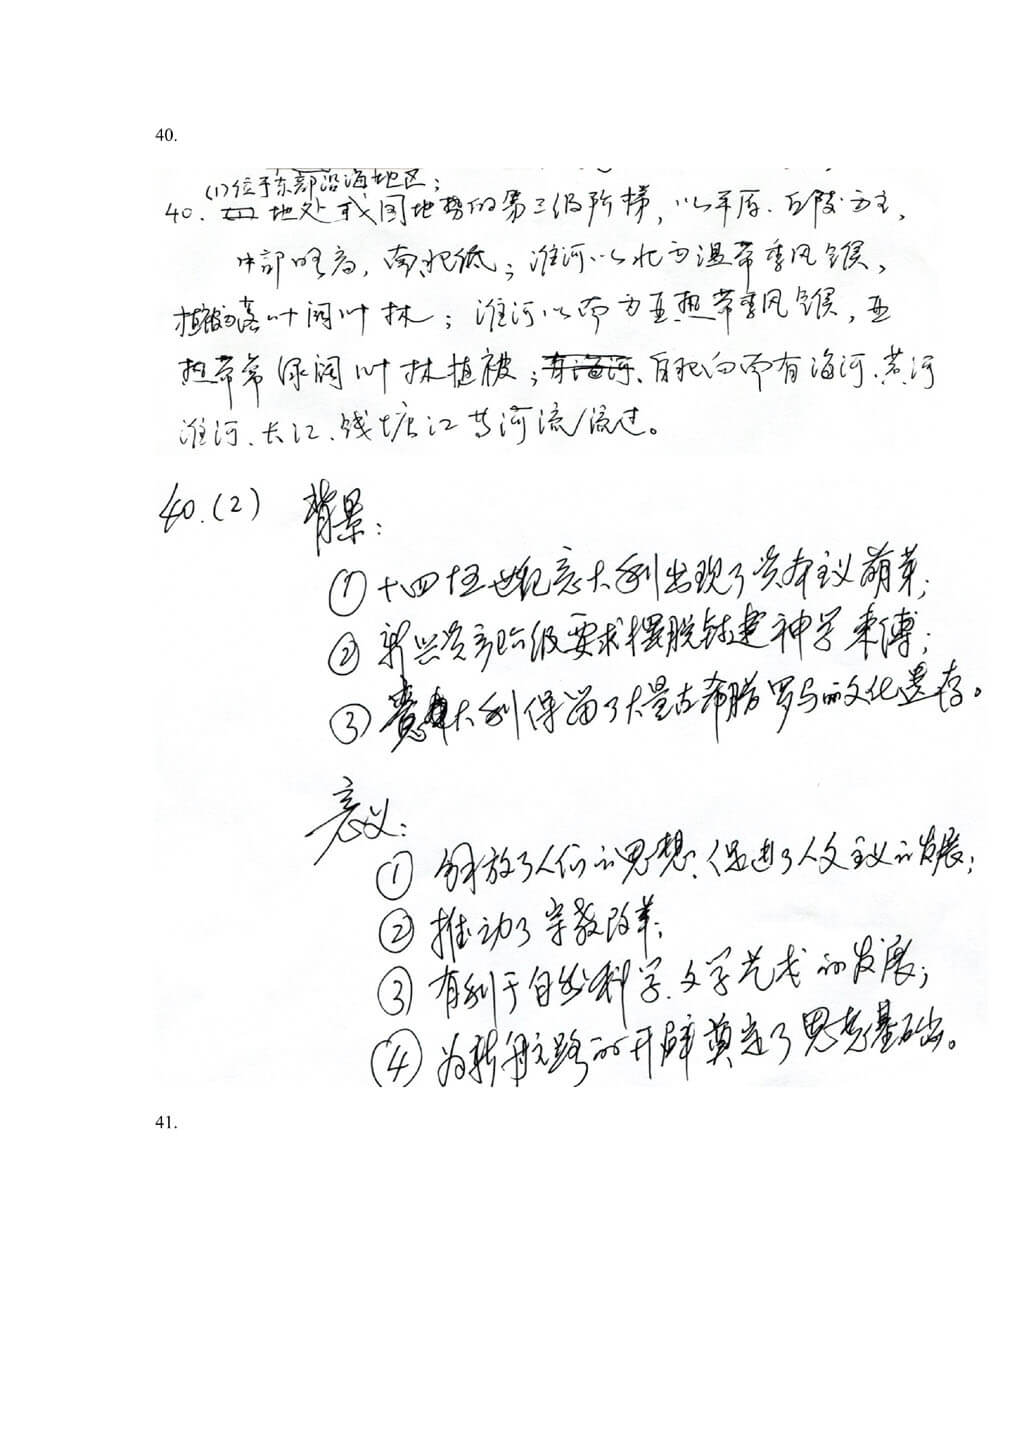 40.
(1)位于东部沿海地区；
40. 地处我国地势的第三级阶梯，以平原、丘陵为主，
中部略高，南北低；淮河以北为温带季风气候，
植被为落叶阔叶林；淮河以南为亚热带季风气候，亚
热带常绿阔叶林植被；有海河、自北向南有海河、黄河
淮河、长江、钱塘江等河流流过。
40.(2) 背景：
① 十四十五世纪意大利出现了资本主义萌芽；
② 新兴资产阶级要求摆脱封建神学束缚；
③ 意大利保留了大量古希腊罗马的文化遗存。
意义：
① 解放了人们的思想；促进了人文主义的发展；
② 推动了宗教改革；
③ 有利于自然科学、文学艺术的发展；
④ 为新航路的开辟奠定了思想基础。
41.